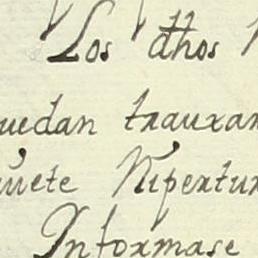 Los dhos
uedan trauaxan
uiete Nipertur
Informase